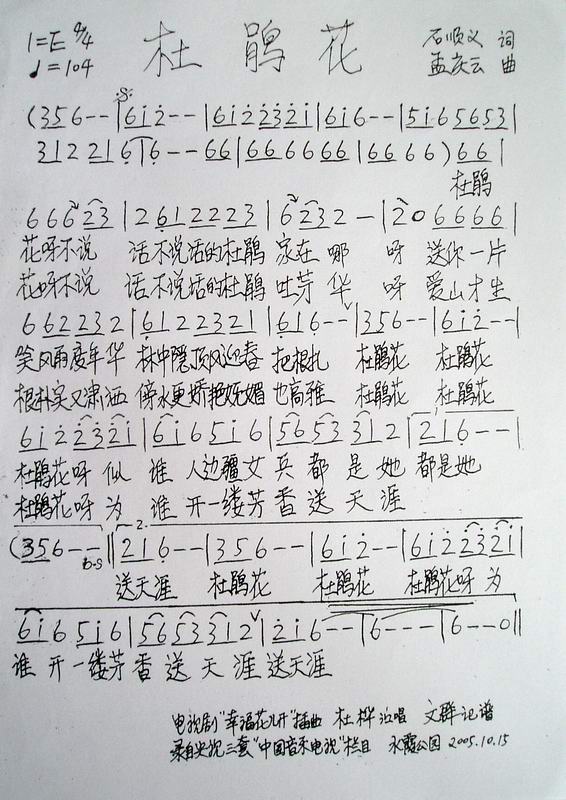 1=E 4/4 杜鹃花 石顺义 词
♩=104 孟庆云 曲
(356--|6i2--|6i2232i|6i6--|5i65653|
3122216|6--66|6666666|6666)66|
杜鹃
66623|2612223|6232-|206666|
花呀不说 话不说话的杜鹃 家在 哪 呀 送你一片
花呀不说 话不说话的杜鹃 吐芽 华 呀 爱山才生
662232|6122321|616--|356--|6i2--|
笑风雨度年华 林中隐顶风迎春 把根扎 杜鹃花 杜鹃花
根朴实又潇洒 傍水更娇艳妩媚 也高雅 杜鹃花 杜鹃花
6i2232i|6i65i6|5653312|216--|
杜鹃花呀 似 谁 人边疆女 兵 都 是 她 都是她
杜鹃花呀 为 谁 开一缕芳 香 送 天 涯
(356--||216--|356--|6i2--|6i2232i|
D.S
送天涯 杜鹃花 杜鹃花 杜鹃花呀 为
6i65i6|5653312|2i6--|6---|6--0||
谁 开一缕芳 香 送 天 涯 送天涯
电视剧"幸福花儿开"插曲 杜桦 演唱 文群 记谱
录自央视三套"中国音乐电视"栏目 永霞公园 2005.10.15